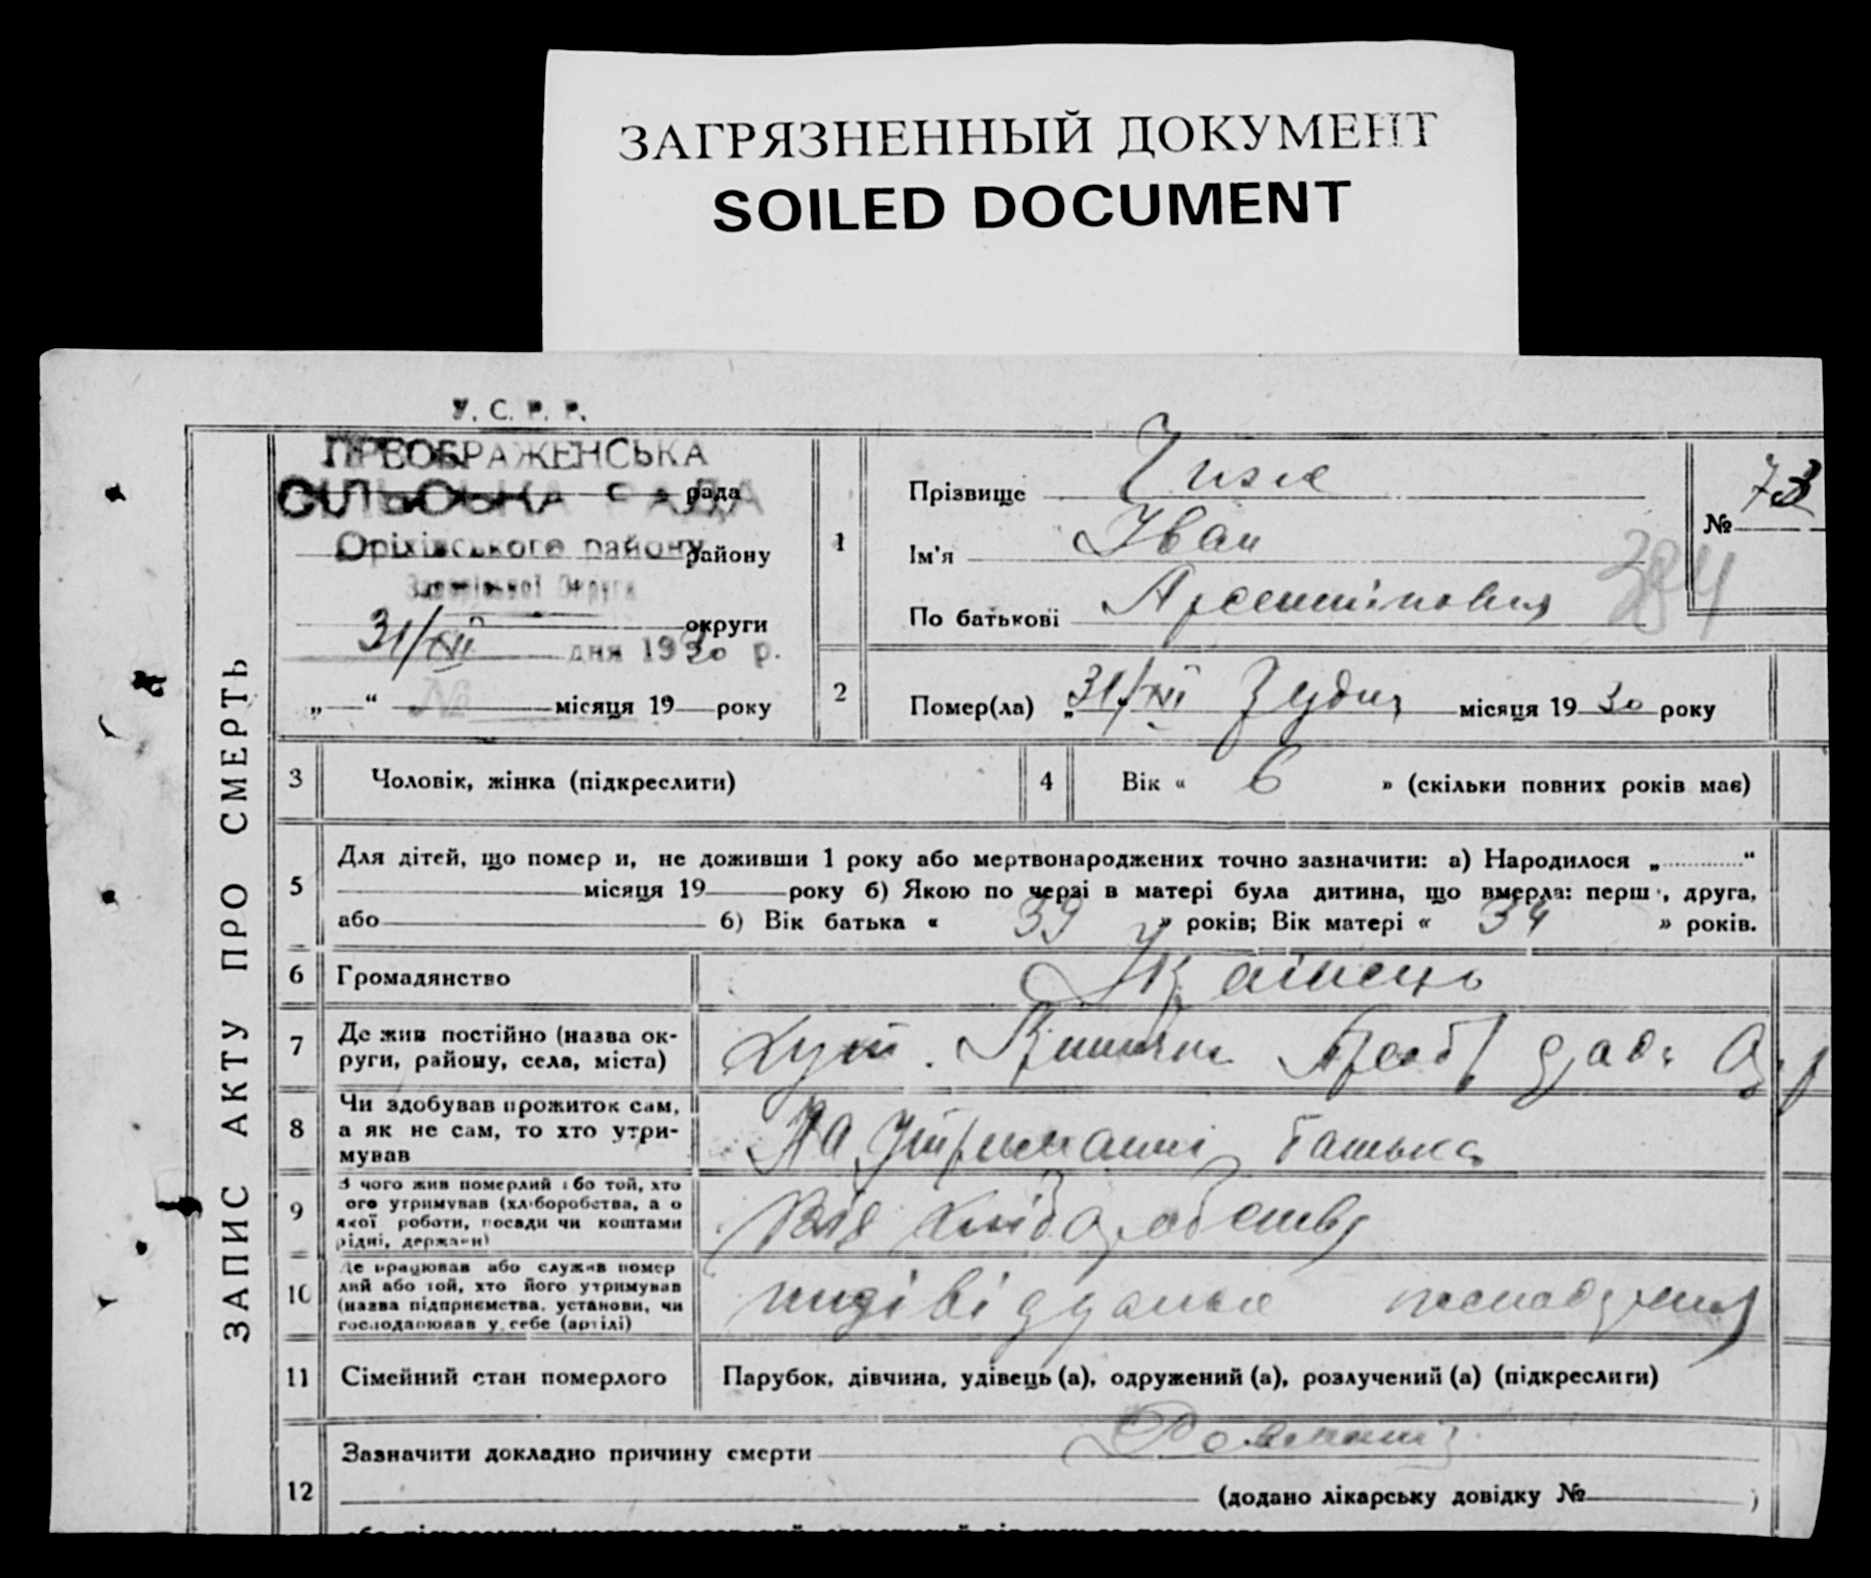 ЗАГРЯЗНЕННЫЙ ДОКУМЕНТ
SOILED DOCUMENT
У. С. Р. Р.
ПРЕОБРАЖЕНСЬКА
СІЛЬСЬКА РАДА рада
Оріхівського району району
Запорізької Округи
округи
31/XII дня 1930 р.
„ “ № місяця 19 року
ЗАПИС АКТУ ПРО СМЕРТЬ
1
Прізвище Чиж
Ім'я Іван
По батькові
№ 73
384
2
Помер(ла) „31/XII Грудня місяця 1930 року
3 Чоловік, жінка (підкреслити)
4 Вік « 6 » (скільки повних років має)
5 Для дітей, що помер и, не доживши 1 року або мертвонароджених точно зазначити: а) Народилося „ “
місяця 19 року б) Якою по черзі в матері була дитина, що вмерла: перш , друга,
або б) Вік батька « 39 » років; Вік матері « 34 » років.
6 Громадянство
7 Де жив постійно (назва ок-
руги, району, села, міста)
Хут.
8 Чи здобував прожиток сам,
а як не сам, то хто утри-
мував
На утриманні батька
9 З чого жив померлий або той, хто
ого утримував (хліборобства, а о
якої роботи, посади чи коштами
рідні, держави)
Від хліборобства
10 Де працював або служив помер
лий або той, хто його утримував
(назва підприємства, установи, чи
господарював у себе (артілі)
11 Сімейний стан померлого
Парубок, дівчина, удівець (а), одружений (а), розлучений (а) (підкреслити)
12 Зазначити докладно причину смерти
(додано лікарську довідку № )